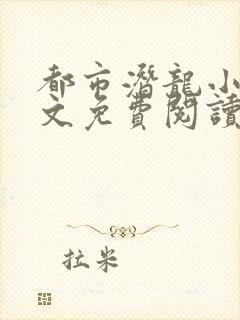 都市潛龍小
文免費閱讀
拉米